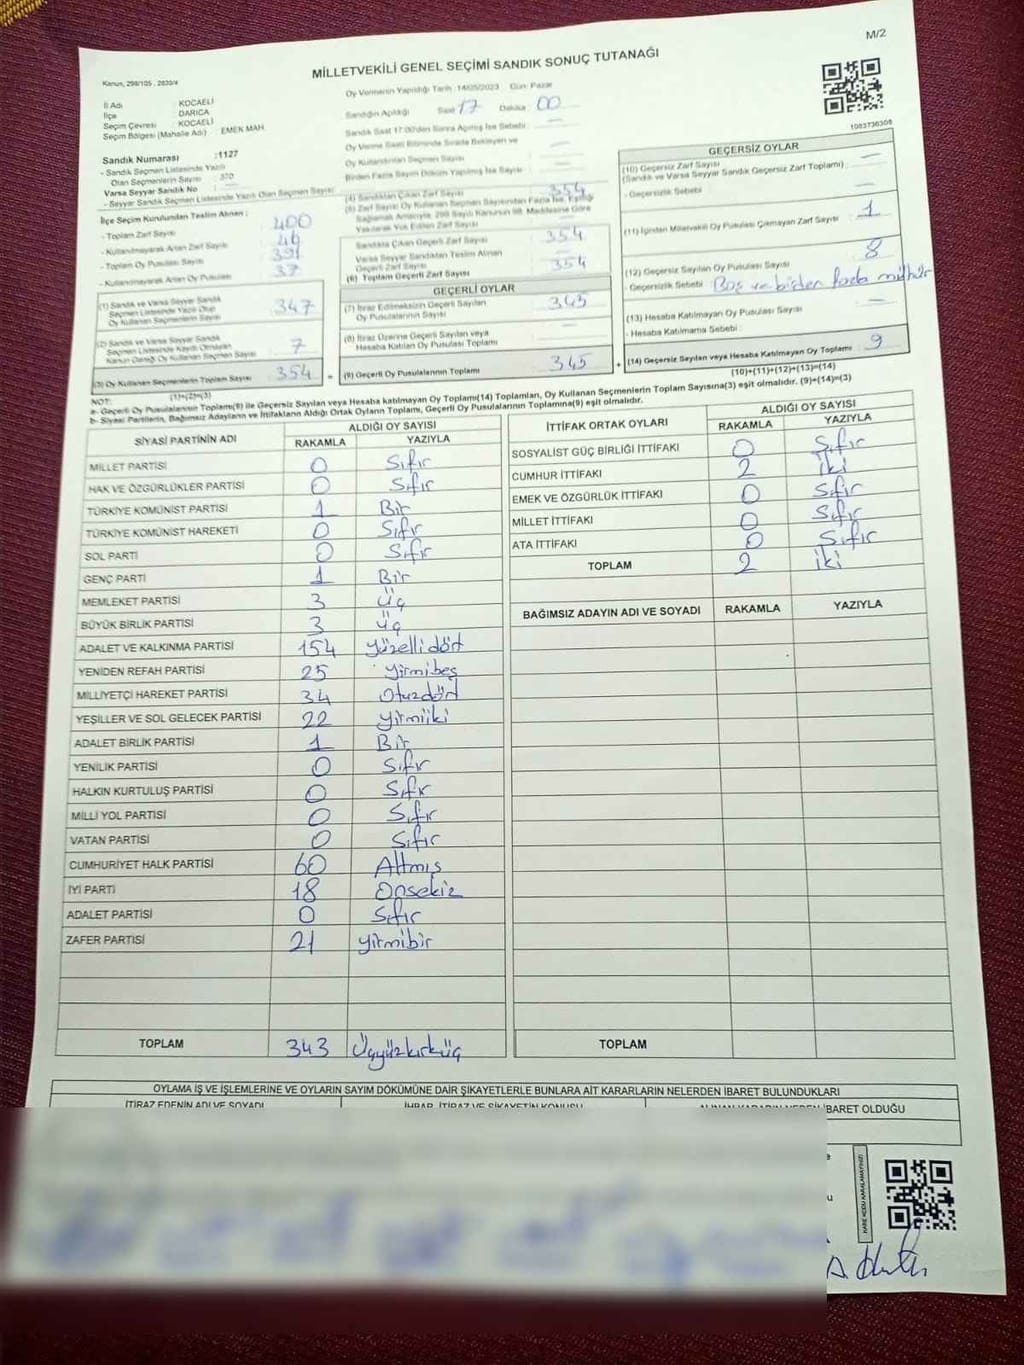 M/2
MİLLETVEKİLİ GENEL SEÇİMİ SANDIK SONUÇ TUTANAĞI
Kanun, 298/105 , 2839/4
İl Adı : KOCAELİ
İlçe : DARICA
Seçim Çevresi : KOCAELİ
Seçim Bölgesi (Mahalle Adı) : EMEK MAH
Sandık Numarası :1127
- Sandık Seçmen Listesinde Yazılı
Olan Seçmenlerin Sayısı : 370
Varsa Seyyar Sandık No :
- Seyyar Sandık Seçmen Listesinde Yazılı Olan Seçmen Sayısı :
İlçe Seçim Kurulundan Teslim Alınan ;
- Toplam Zarf Sayısı : 400
- Kullanılmayarak Artan Zarf Sayısı : 46
- Toplam Oy Pusulası Sayısı : 391
- Kullanılmayarak Artan Oy Pusulası : 37
(1) Sandık ve Varsa Seyyar Sandık
Seçmen Listesinde Yazılı Olup
Oy Kullanan Seçmenlerin Sayısı : 347
(2) Sandık ve Varsa Seyyar Sandık
Seçmen Listesinde Kayıtlı Olmayan
Kanun Gereği Oy Kullanan Seçmen Sayısı : 7
(3) Oy Kullanan Seçmenlerin Toplam Sayısı : 354
(1)+(2)=(3)
Oy Vermenin Yapıldığı Tarih :14/05/2023 Gün: Pazar
Sandığın Açıldığı Saat 17 Dakika 00
Sandık Saat 17:00'den Sonra Açılmış İse Sebebi :
Oy Verme Saati Bitiminde Sırada Bekleyen ve
Oy Kullandırılan Seçmen Sayısı :
Birden Fazla Sayım Döküm Yapılmış İse Sayısı :
(4) Sandıktan Çıkan Zarf Sayısı : 354
(5) Zarf Sayısı Oy Kullanan Seçmen Sayısından Fazla İse, Eşitliği
Sağlamak Amacıyla, 298 Sayılı Kanunun 98. Maddesine Göre
Yakılarak Yok Edilen Zarf Sayısı :
Sandıkta Çıkan Geçerli Zarf Sayısı : 354
Varsa Seyyar Sandıktan Teslim Alınan
Geçerli Zarf Sayısı
(6) Toplam Geçerli Zarf Sayısı : 354
GEÇERLİ OYLAR
(7) İtiraz Edilmeksizin Geçerli Sayılan
Oy Pusulasının Sayısı : 345
(8) İtiraz Üzerine Geçerli Sayılan veya
Hesaba Katılan Oy Pusulası Toplamı :
(9) Geçerli Oy Pusulalarının Toplamı : 345
1083736308
GEÇERSİZ OYLAR
(10) Geçersiz Zarf Sayısı
(Sandık ve Varsa Seyyar Sandık Geçersiz Zarf Toplamı) :
- Geçersizlik Sebebi :
(11) İçinden Milletvekili Oy Pusulası Çıkmayan Zarf Sayısı : 1
(12) Geçersiz Sayılan Oy Pusulası Sayısı : 8
- Geçersizlik Sebebi : Boş ve birden fazla mühür
(13) Hesaba Katılmayan Oy Pusulası Sayısı :
- Hesaba Katılmama Sebebi :
+ (14) Geçersiz Sayılan veya Hesaba Katılmayan Oy Toplamı : 9
(10)+(11)+(12)+(13)=(14)
NOT:
a- Geçerli Oy Pusulalarının Toplamı(9) ile Geçersiz Sayılan veya Hesaba katılmayan Oy Toplamı(14) Toplamları, Oy Kullanan Seçmenlerin Toplam Sayısına(3) eşit olmalıdır. (9)+(14)=(3)
b- Siyasi Partilerin, Bağımsız Adayların ve İttifakların Aldığı Ortak Oyların Toplamı, Geçerli Oy Pusulalarının Toplamına(9) eşit olmalıdır.
SİYASİ PARTİNİN ADI ALDIĞI OY SAYISI
RAKAMLA YAZIYLA
MİLLET PARTİSİ 0 Sıfır
HAK VE ÖZGÜRLÜKLER PARTİSİ 0 Sıfır
TÜRKİYE KOMÜNİST PARTİSİ 1 Bir
TÜRKİYE KOMÜNİST HAREKETİ 0 Sıfır
SOL PARTİ 0 Sıfır
GENÇ PARTİ 1 Bir
MEMLEKET PARTİSİ 3 Üç
BÜYÜK BİRLİK PARTİSİ 3 Üç
ADALET VE KALKINMA PARTİSİ 154 Yüzellidört
YENİDEN REFAH PARTİSİ 25 Yirmibeş
MİLLİYETÇİ HAREKET PARTİSİ 34 Otuzdört
YEŞİLLER VE SOL GELECEK PARTİSİ 22 Yirmiiki
ADALET BİRLİK PARTİSİ 1 Bir
YENİLİK PARTİSİ 0 Sıfır
HALKIN KURTULUŞ PARTİSİ 0 Sıfır
MİLLİ YOL PARTİSİ 0 Sıfır
VATAN PARTİSİ 0 Sıfır
CUMHURİYET HALK PARTİSİ 60 Altmış
İYİ PARTİ 18 Onsekiz
ADALET PARTİSİ 0 Sıfır
ZAFER PARTİSİ 21 Yirmibir
TOPLAM 343 Üçyüzkırküç
İTTİFAK ORTAK OYLARI ALDIĞI OY SAYISI
RAKAMLA YAZIYLA
SOSYALİST GÜÇ BİRLİĞİ İTTİFAKI 0 Sıfır
CUMHUR İTTİFAKI 2 İki
EMEK VE ÖZGÜRLÜK İTTİFAKI 0 Sıfır
MİLLET İTTİFAKI 0 Sıfır
ATA İTTİFAKI 0 Sıfır
TOPLAM 2 İki
BAĞIMSIZ ADAYIN ADI VE SOYADI RAKAMLA YAZIYLA
TOPLAM
OYLAMA İŞ VE İŞLEMLERİNE VE OYLARIN SAYIM DÖKÜMÜNE DAİR ŞİKAYETLERLE BUNLARA AİT KARARLARIN NELERDEN İBARET BULUNDUKLARI
İTİRAZ EDENİN ADI VE SOYADI İHBAR, İTİRAZ VE ŞİKAYETİN KONUSU ALINAN KARARIN NEDEN İBARET OLDUĞU
KARE KODU KARALAMAYINIZ!